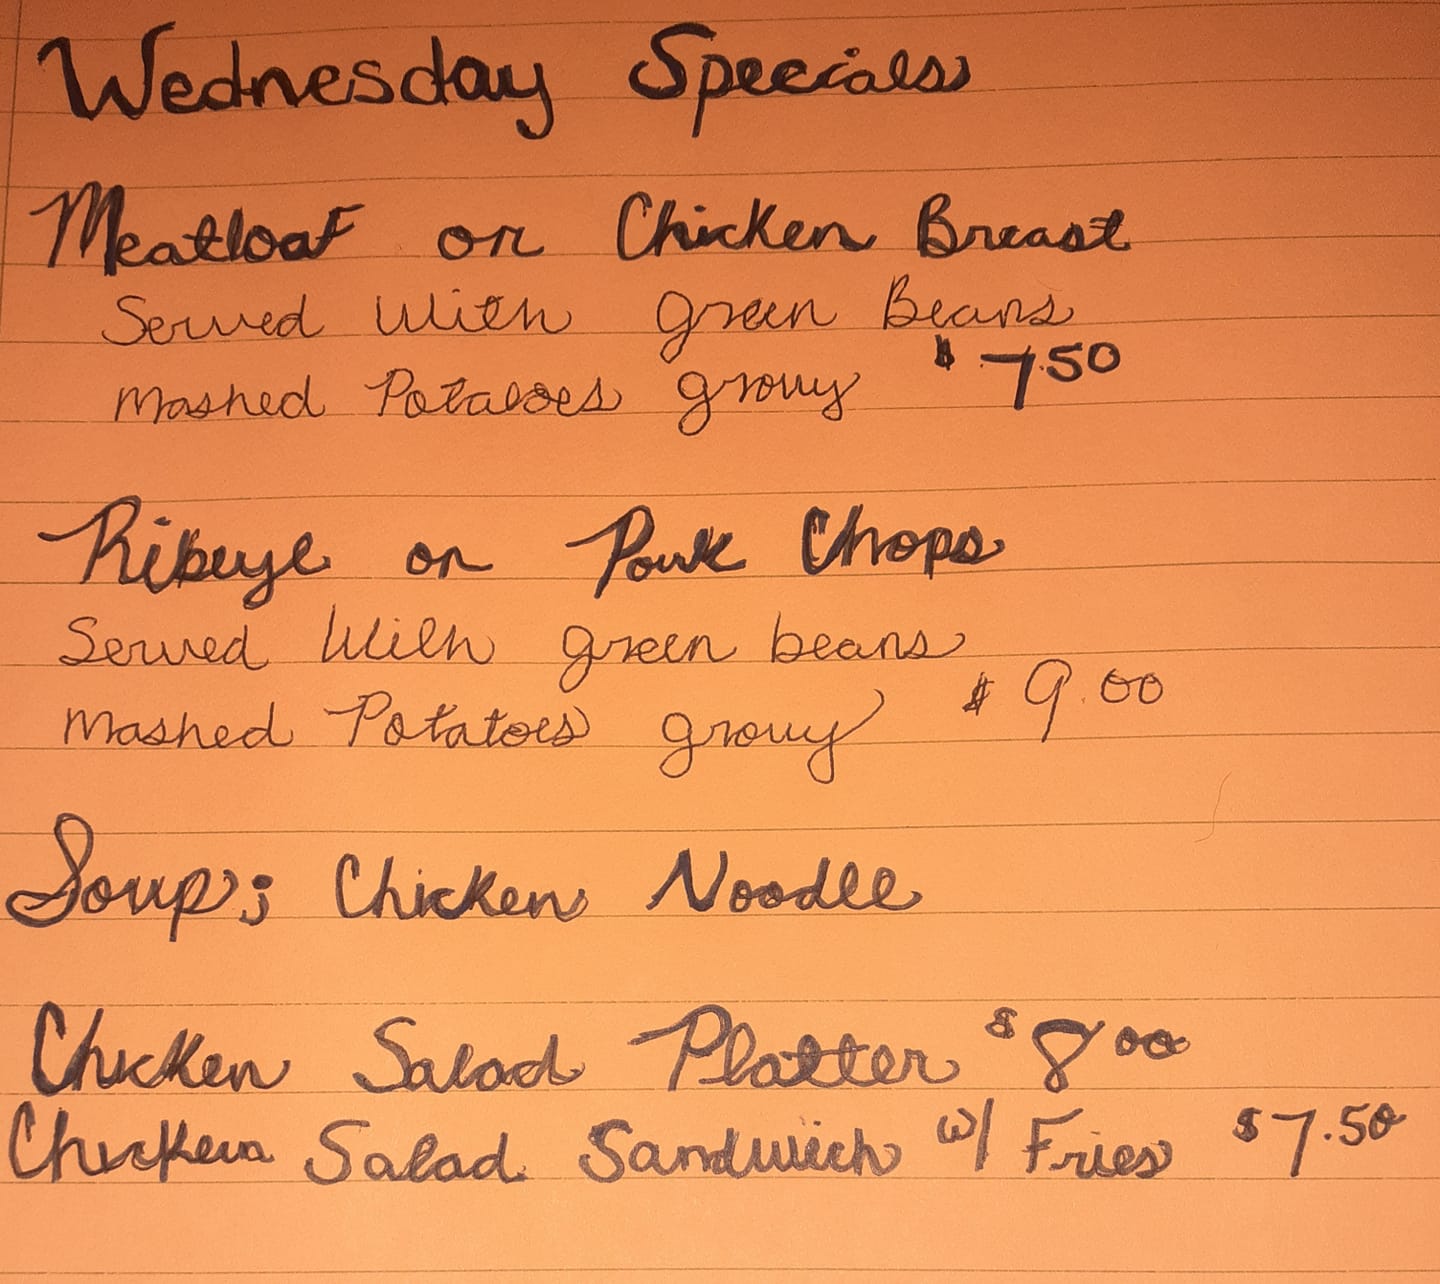 Wednesday Specials
Meatloaf or Chicken Breast
Served With green Beans
Mashed Potatoes gravy $7.50
Ribeye or Pork Chops
Served With green beans
Mashed Potatoes gravy $9.00
Soup; Chicken Noodle
Chicken Salad Platter $8.00
Chicken Salad Sandwich w/ Fries $7.50